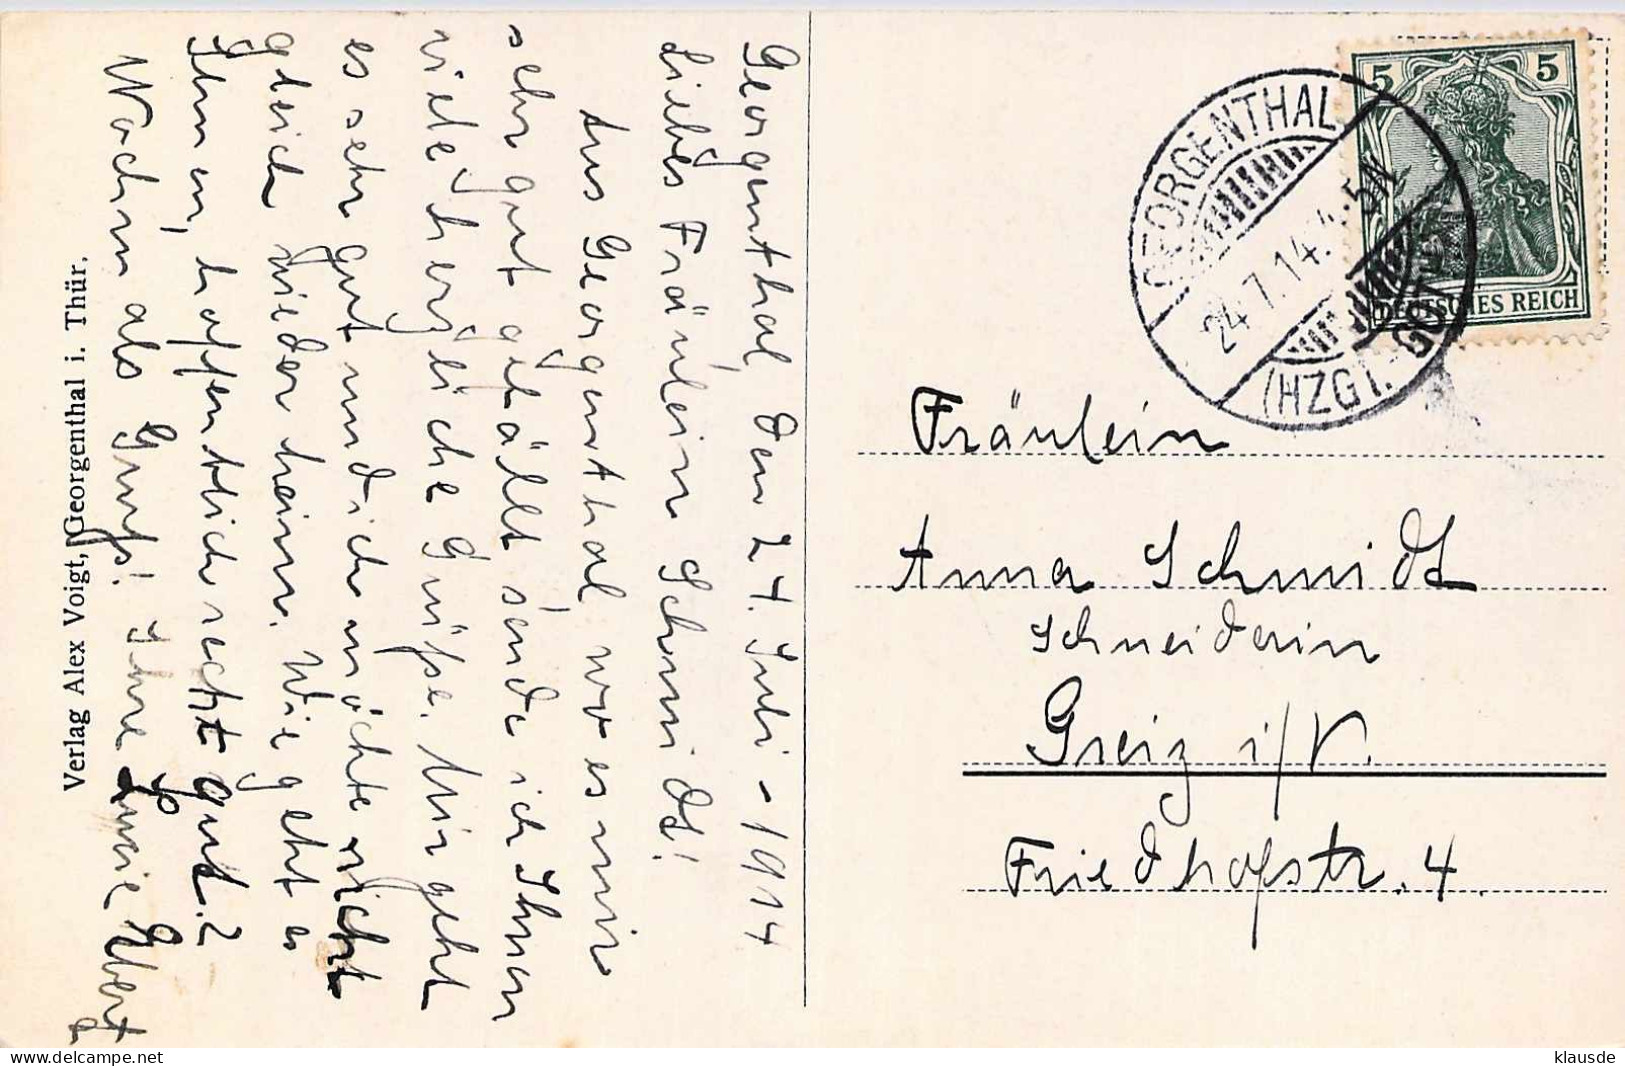 Georgenthal, den 24. Juli - 1914
Liebes Fräulein Schmidt!
Aus Georgenthal wo es mir
sehr gut gefällt sende ich Ihnen
viele herzliche Grüße. Mir geht
es sehr gut und ich möchte nicht
gleich wieder heim. Wie geht es
Ihnen, hoffentlich recht gut?
Nochmals Gruß! Ihre Luzie Ebert
Verlag Alex Voigt, Georgenthal i. Thür.
GEORGENTHAL
24.7.14. 5N
(HZGT. GOTHA)
5 5
DEUTSCHES REICH
Fräulein
Anna Schmidt
Schneiderin
Greiz i/V.
Friedhofstr. 4.
delcampe.net
klausde